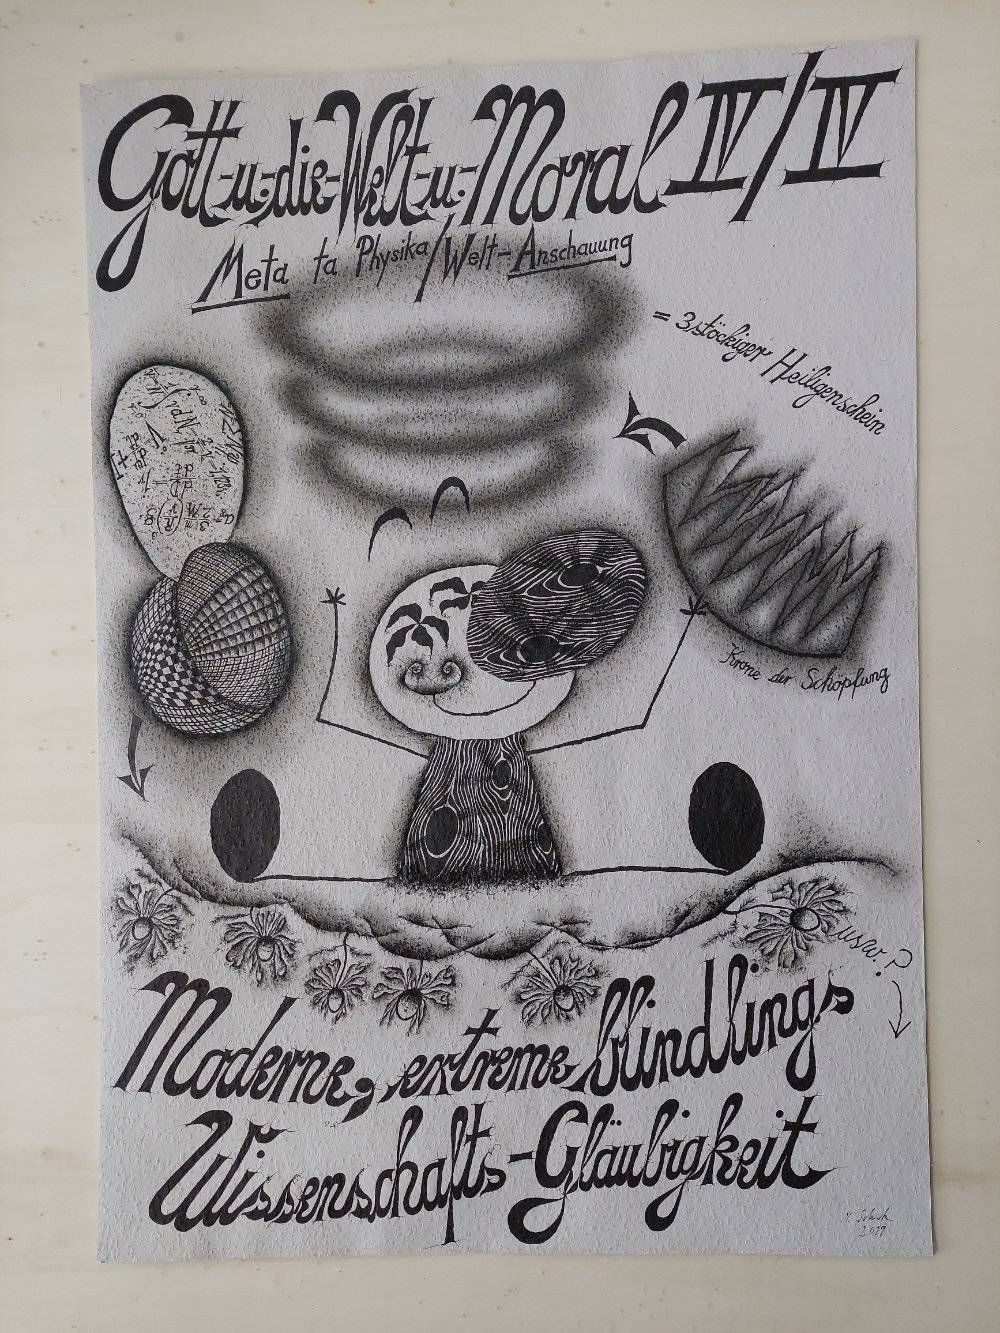 Gott-u.-die-Welt-u.-Moral IV/IV
Meta ta Physika/Welt-Anschauung
= 3stöckiger Heiligenschein
Krone der Schöpfung
usw.?
Moderne, extreme blindlings
Wissenschafts-Gläubigkeit
2019